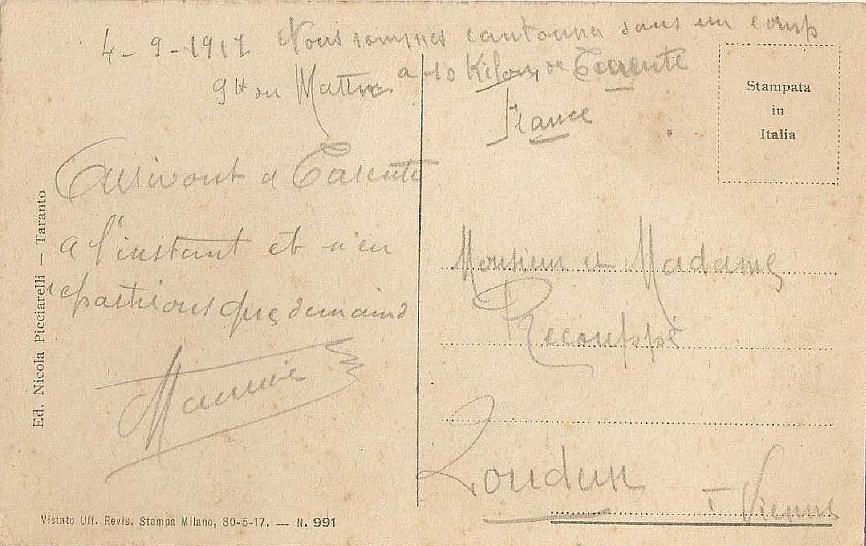 4-9-1917 Nous sommes cantonna dans un camp
9h du Mattin a 10 Kilom de Tarente
France
Stampata
in
Italia
Arrivont a Tarente
a l'instant et n'en
repartirons que demain
Maurice
Monsieur et Madame
Recouppé
Loudun
Vienne
Ed. Nicola Picciarelli — Taranto
Vistato Uff. Revis. Stampa Milano, 30-5-17. — N. 991